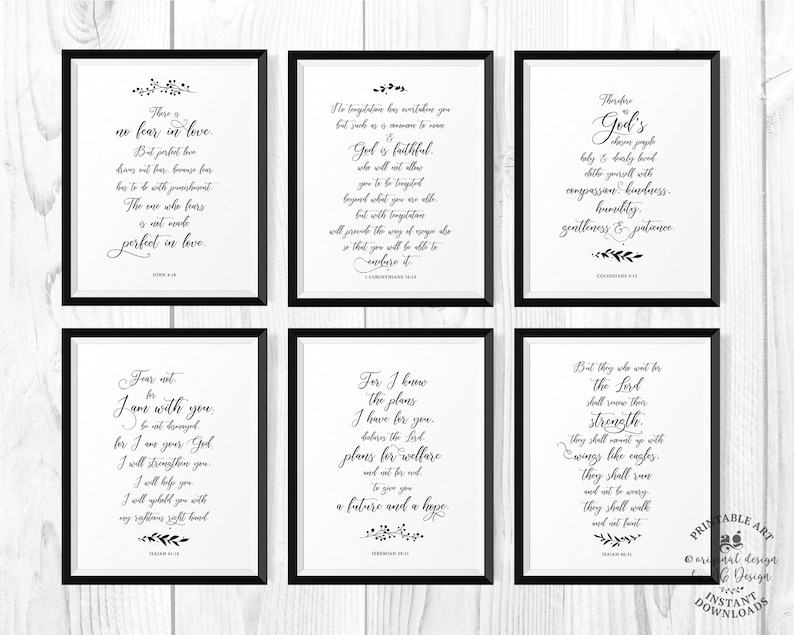 There is
no fear in love.
But perfect love
drives out fear, because fear
has to do with punishment.
The one who fears
is not made
perfect in love.
JOHN 4:18
No temptation has overtaken you
but such as is common to man
&
God is faithful,
who will not allow
you to be tempted
beyond what you are able,
but with temptation
will provide the way of escape also
so that you will be able to
endure it.
1 CORINTHIANS 10:13
Therefore
as
God's
chosen people
holy & dearly loved,
clothe yourself with
compassion, kindness,
humility,
gentleness & patience.
COLOSSIANS 3:12
Fear not,
for
I am with you,
be not dismayed,
for I am your God,
I will strengthen you,
I will help you,
I will uphold you with
my righteous right hand.
ISAIAH 41:10
For I know
the plans
I have for you,
declares the Lord,
plans for welfare
and not for evil,
to give you
a future and a hope.
JEREMIAH 29:11
But they who wait for
the Lord
shall renew their
strength,
they shall mount up with
wings like eagles,
they shall run
and not be weary,
they shall walk
and not faint.
ISAIAH 40:31
PRINTABLE ART
© original design
Design
INSTANT
DOWNLOADS